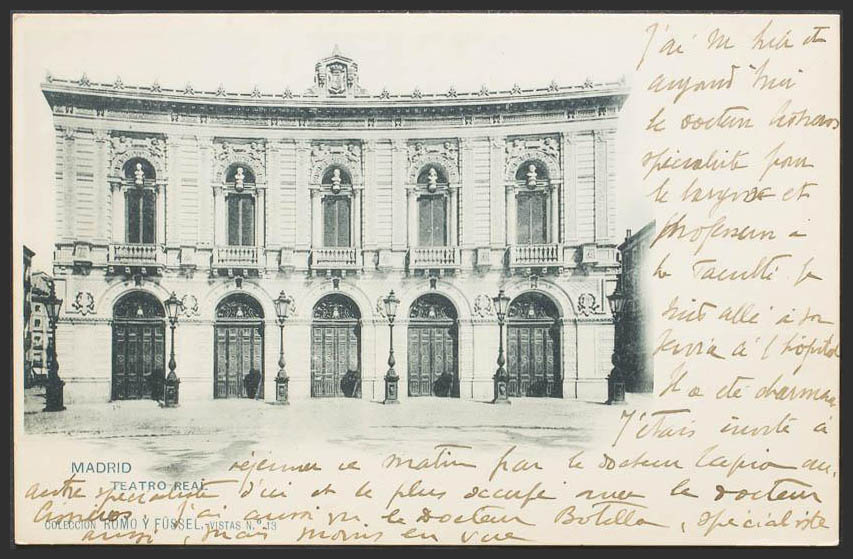 J'ai vu hier et
aujourd'hui
le docteur Cisneros
spécialiste pour
le larynx et
professeur à
la Faculté. Je
suis allé à son
service à l'hôpital
Il a été charmant
J'étais invité à
déjeuner ce matin par le docteur Tapia au-
MADRID
TEATRO REAL
autre spécialiste d'ici et le plus occupé avec le docteur
Cisneros, j'ai aussi vu le Docteur Botella, spécialiste
COLECCIÓN ROMO Y FÜSSEL.-VISTAS N.º 13
aussi, mais moins en vue